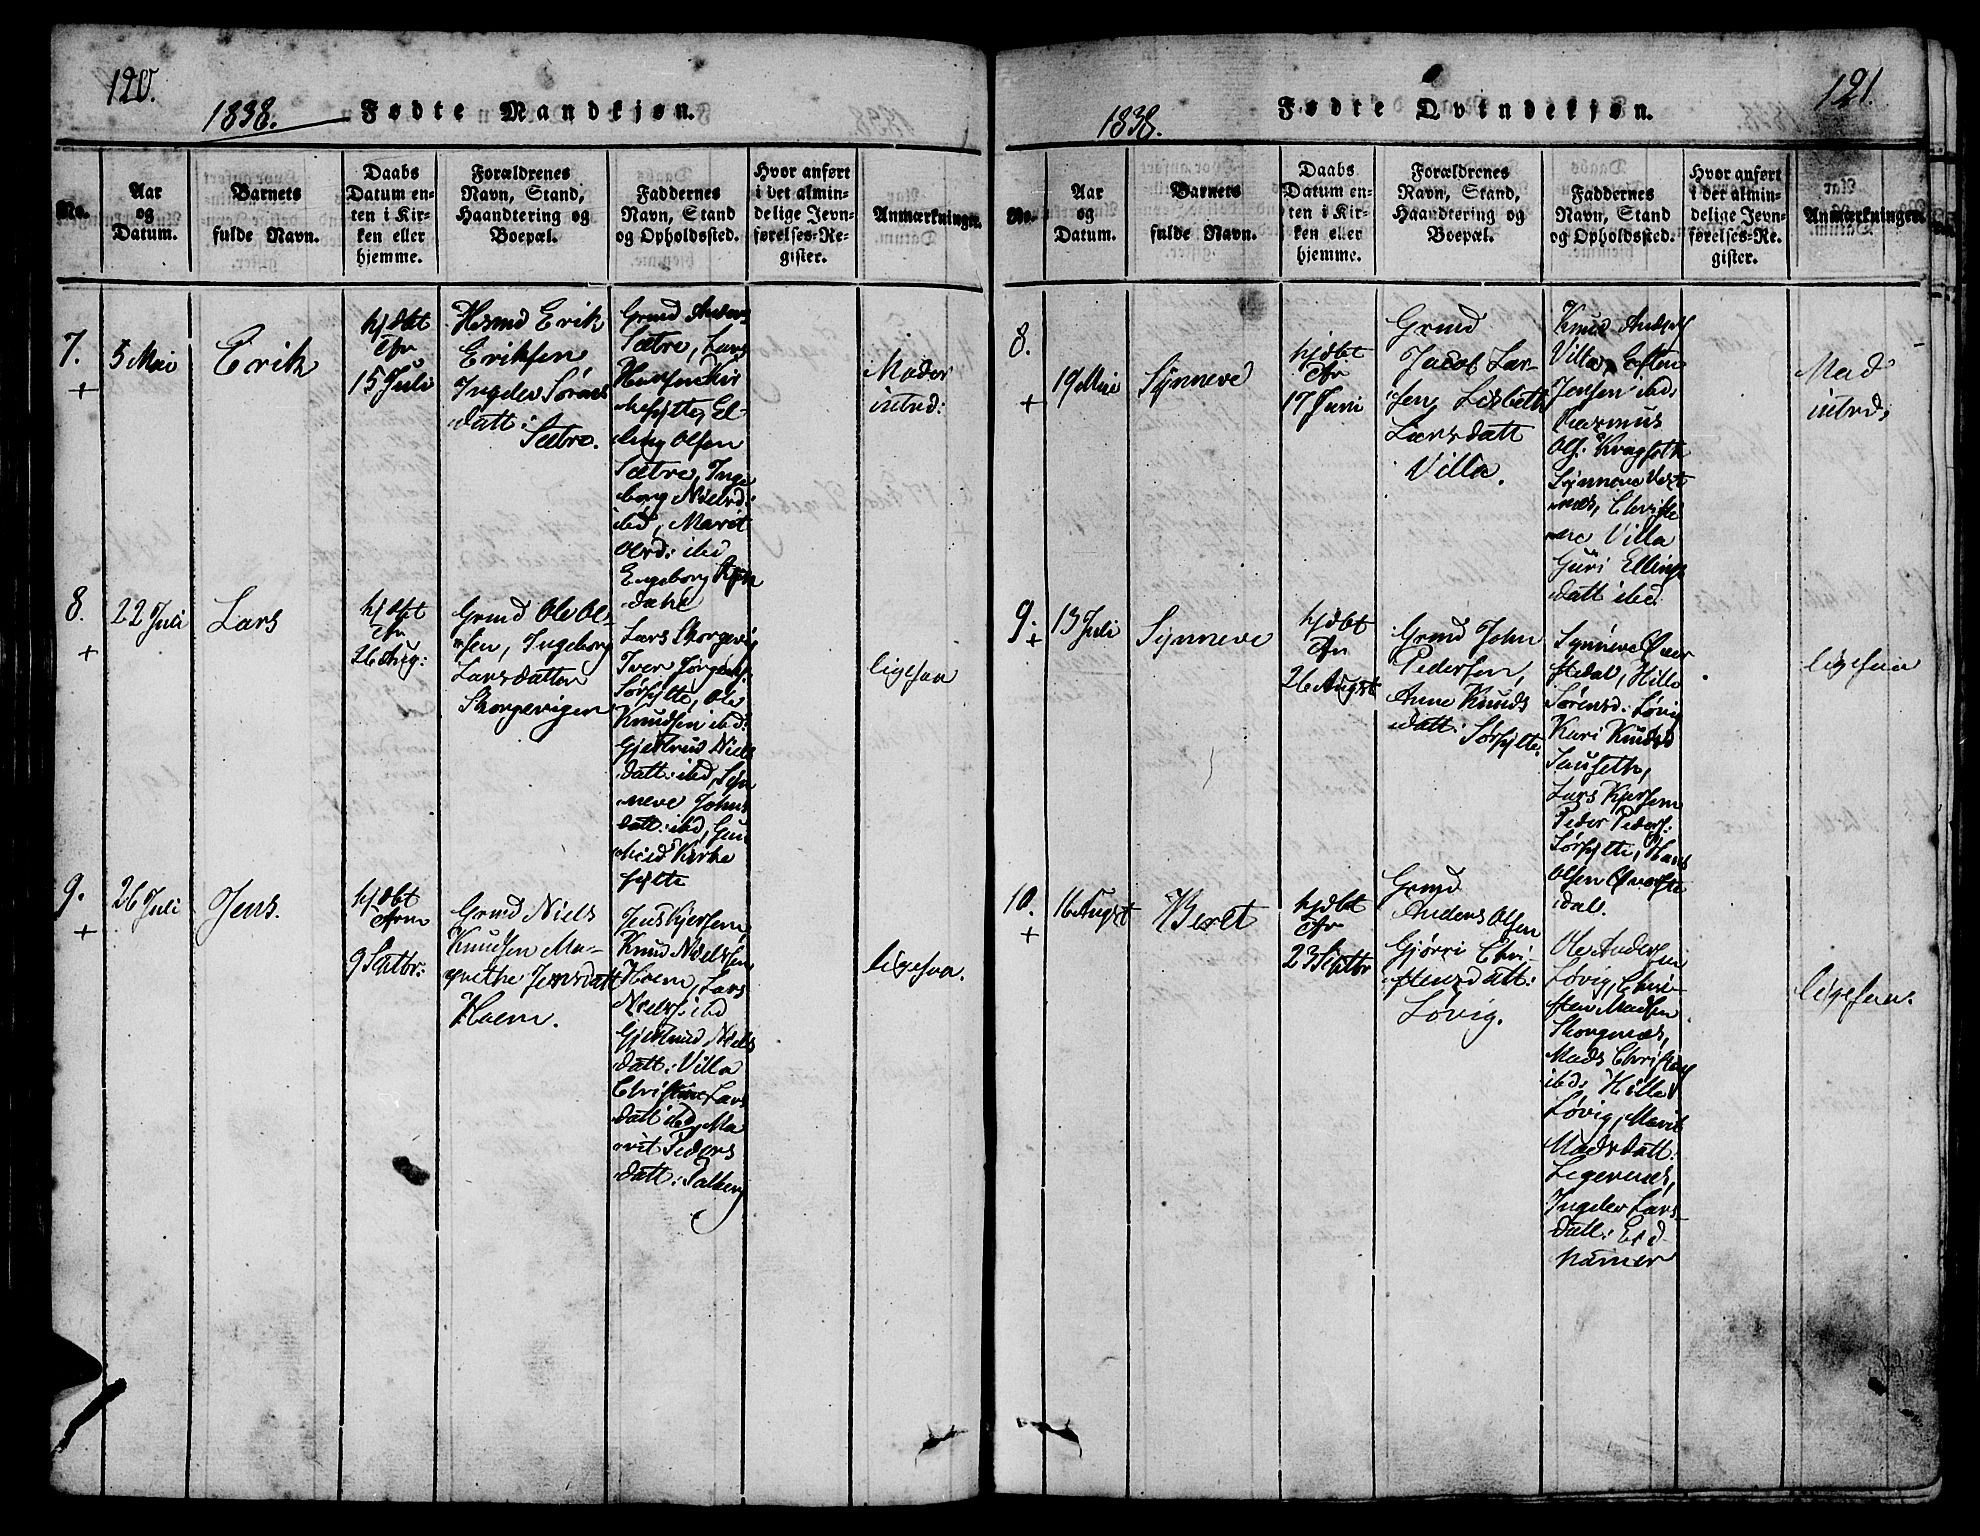 120.
1838. Fødte Mandkjøn.
No.
Aar
og
Datum.
Barnets
fulde Navn.
Daabs
Datum en-
ten i Kir-
ken eller
hjemme.
Forældrenes
Navn, Stand,
Haandtering og
Boepæl.
Faddernes
Navn, Stand
og Opholdssted.
Hvor anført
i det almin-
delige Jevn-
førelses-Re-
gister.
Anmærkninger.
7.
+
5 Mai
Erik
hjdbt
Chr
15 Juli
Husmd Erik
Eriksen
Ingeler Sørens
datt:
Sætre.
Grmd Anders
Sætre, Lars
Hansen Kir
kefylte, El-
ling Olsen
Sætre, Inge
borg Nielsd:
ibd, Marit
Olsd: ibd
Engeborg
dahl
Moder
introd:
8.
+
22 Juli
Lars
hjdbt
Chr
26 Aug:
Grmd Ole Ol-
sen, Ingeborg
Larsdatter
Skorgevigen
Lars Skorgevig
Iver Jørgens:
Sørfylte, Ole
Knudsen ibd:
Gjertrud Niels
datt: ibd, Syn
neve Johns
datt: ibd, Gun
hild Kirke
fylte
ligesaa
9.
+
26 Juli
Jens.
hjdbt
9 Septbr:
Grmd Niels
Knudsen Ma-
grethe Jensdatt
Hoem.
Jens Kjersem,
Knud Nielsen
Hoem, Lars
Niels: ibd
Gjertrud Niels
datt: Villa
Christine Lars
datt ibd, Ma
rit Peders
datt: Salberg
ligesaa.
121.
1838. Fødte Qvindekjøn.
No.
Aar
og
Datum.
Barnets
fulde Navn.
Daabs
Datum en-
ten i Kir-
ken eller
hjemme.
Forældrenes
Navn, Stand,
Haandtering og
Boepæl.
Faddernes
Navn, Stand
og Opholdssted.
Hvor anført
i det almin-
delige Jevn-
førelses-Re-
gister.
Anmærkninger.
8.
+
19 Mai
Synneve
hjdbt
Chr
17 Juni
Grmd
Jacob Lar-
sen, Lisbeth
Larsdatt
Villa.
Knud Anders
Villa, Esten
Jensen ibd:
Rasmus
Ols: Kragseth
Synneve Vest
næs, Christi
ane Villa
Guri Ellings
datt ibd.
Mod
introd:
9.
+
13 Juli
Synneve
hjdbt
Chr
26 August
Grmd John
Pedersen,
Anne Knuds
datt: Sørfylte.
Synneve Øver
stedal, Hille
Sørensd: Løvig
Kari Knudsd
Sauseth,
Lars Kjersem
Peder Peders:
Sørfylte, Hans
Olsen Øverste
dal.
ligesaa
10.
+
16 August
Beret
hjdbt
Chr
23 Septbr
Grmd
Anders Olsen
Gjørri Chri-
stensdatt:
Løvig.
Ole Andersen
Løvig, Chri-
sten Madsen
Skorgenæs,
Mads Christens
ibd: Hille
Løvig, Marit
Madsdatt:
Legernæs,
Ingeler Lars
datt: Eid
hamer
ligesaa.